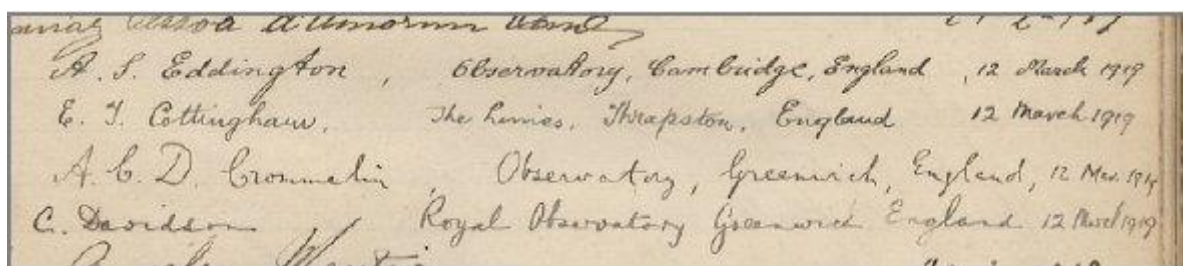 A. S. Eddington, Observatory, Cambridge, England, 12 March 1919
E. T. Cottingham. The Limes, Thrapston, England 12 March 1919
A. C. D. Crommelin, Observatory, Greenwich, England, 12 Mar. 1919
C. Davidson Royal Observatory Greenwich England 12 March 1919